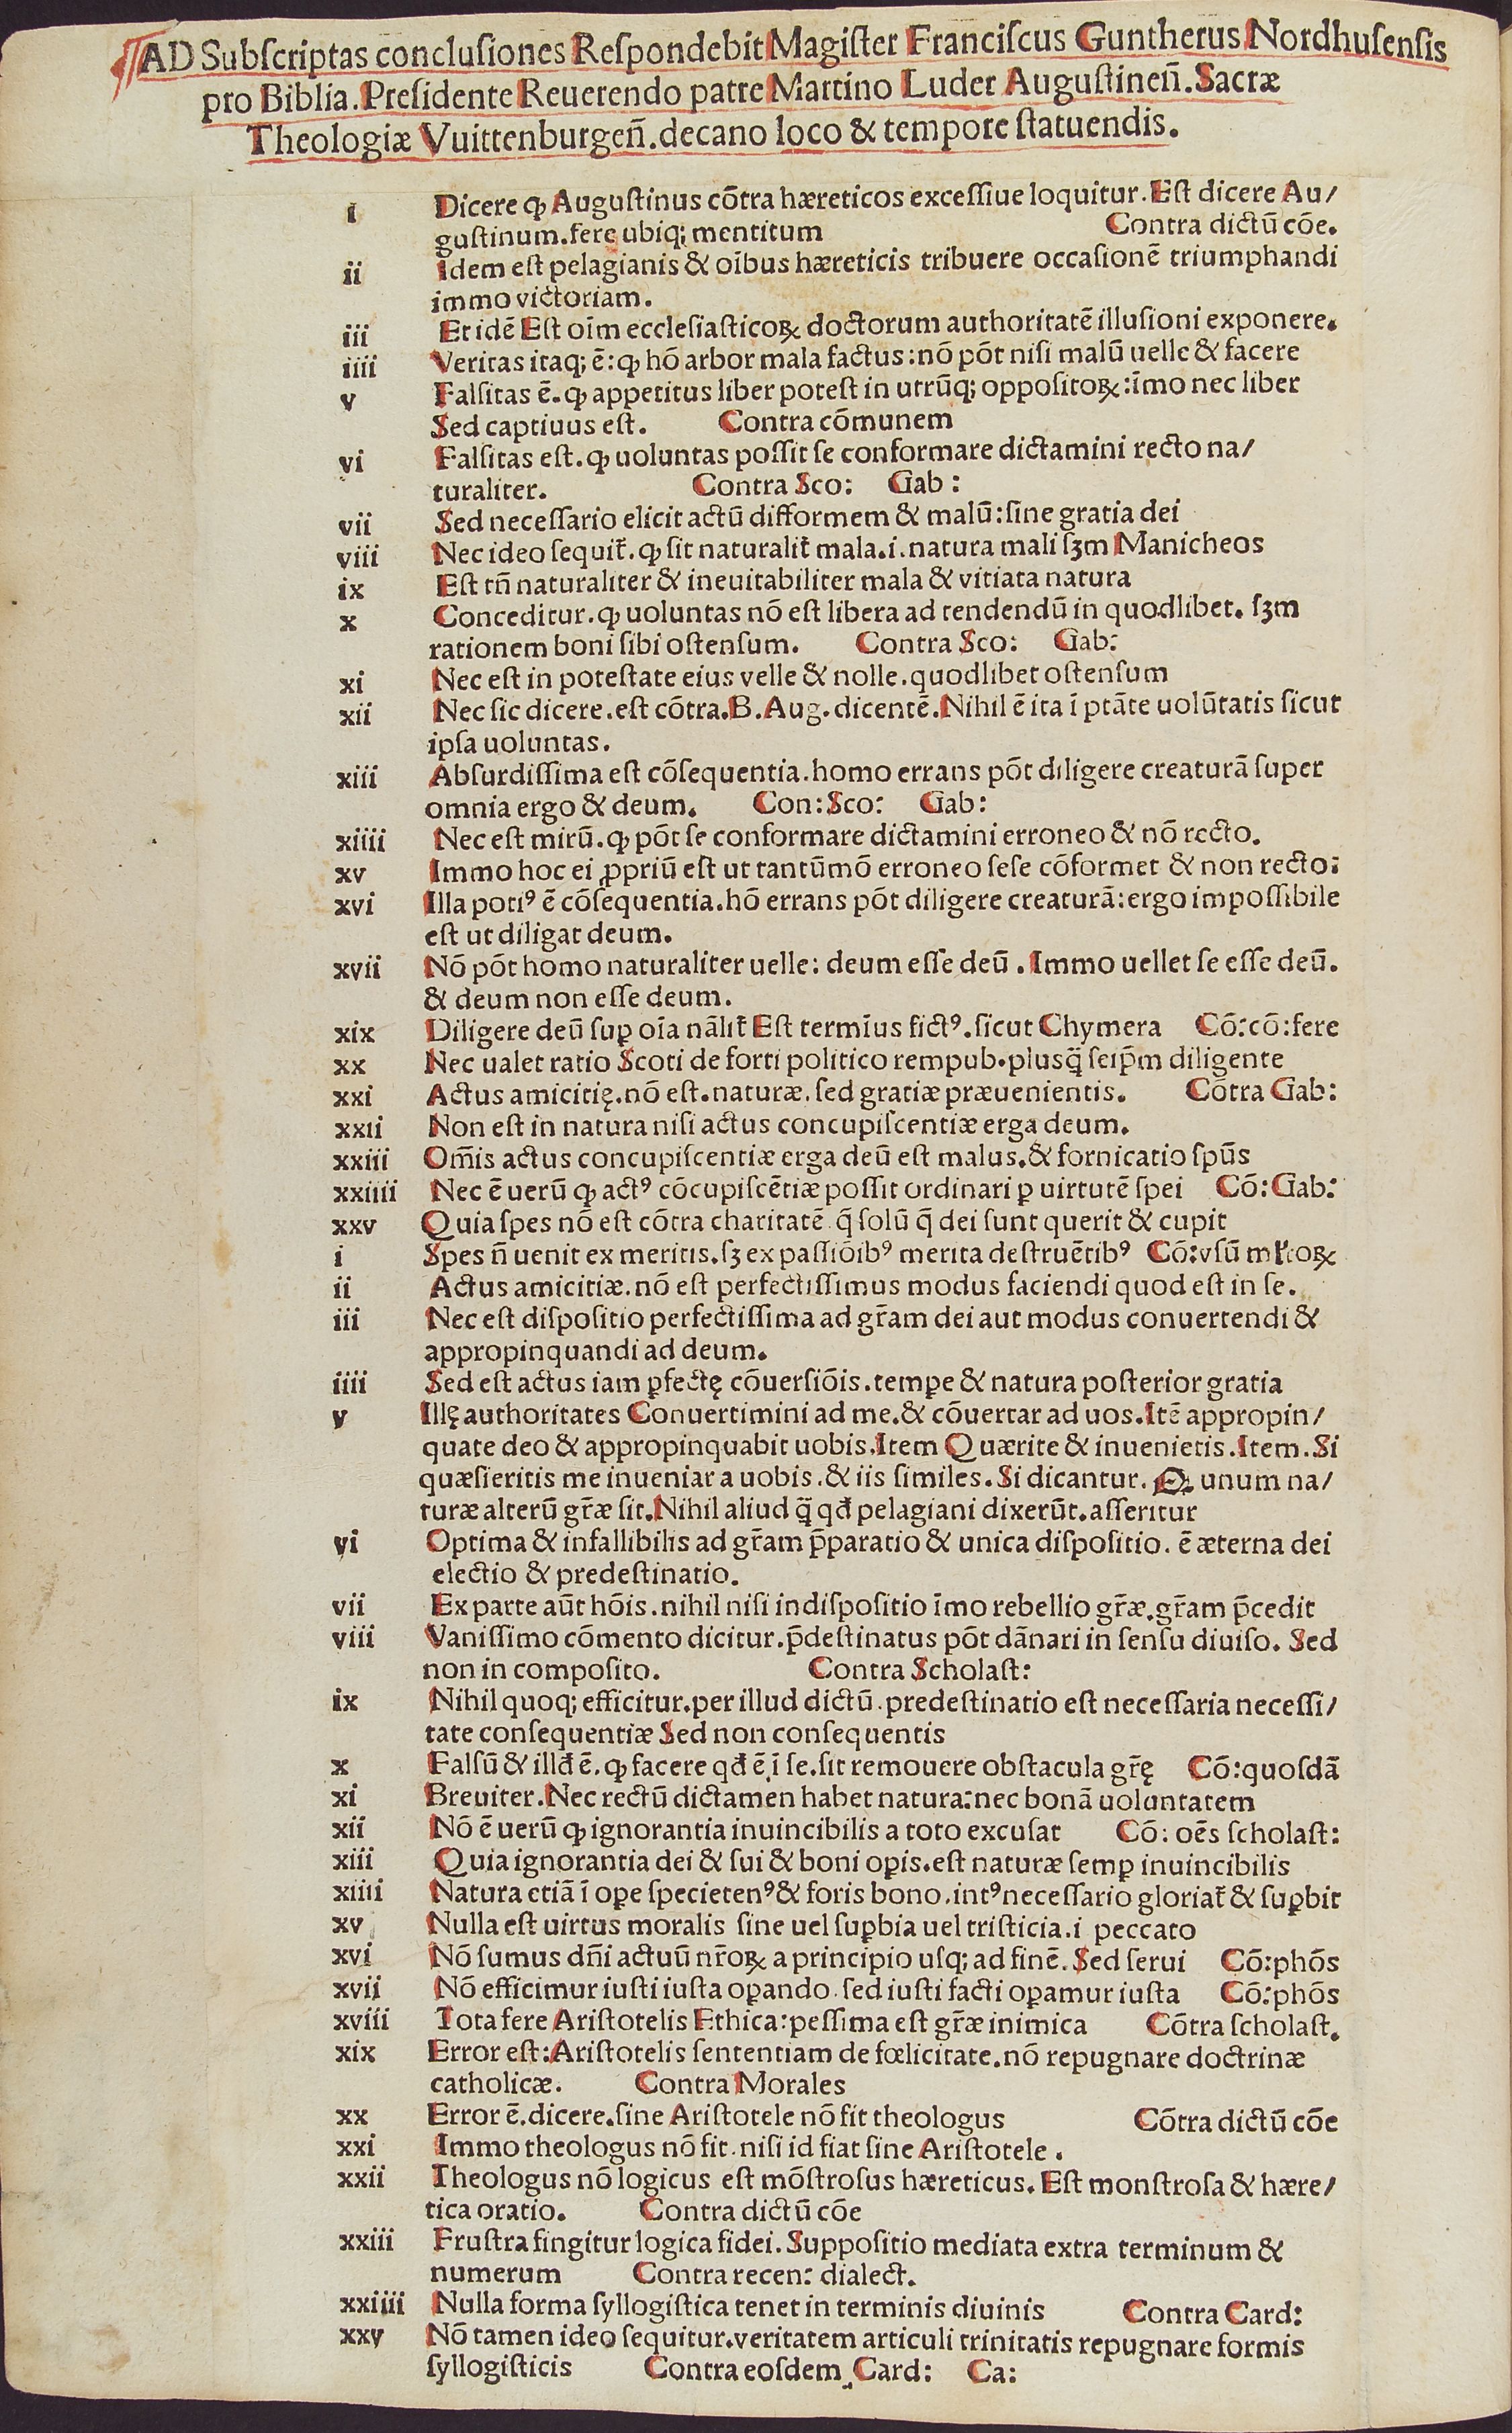 AD Subſcriptas concluſiones Reſpondebit Magiſter Franciſcus Guntherus Nordhuſenſis
pro Biblia. Preſidente Reuerendo patre Martino Luder Auguſtineñ. Sacræ
Theologiæ Vuittenburgeñ. decano loco & tempore ſtatuendis.
i Dicere ꝙ Auguſtinus cõtra hæreticos exceſſiue loquitur. Eſt dicere Au/
guſtinum. fere ubiq; mentitum Contra dictũ cõe.
ii Idem eſt pelagianis & oĩbus hæreticis tribuere occaſionẽ triumphandi
immo victoriam.
iii Et idẽ Eſt oĩm ecclesiaſticoꝝ doctorum authoritatẽ illuſioni exponere.
iiii Veritas itaq; ẽ: ꝙ hõ arbor mala factus: nõ põt niſi malũ uelle & facere
v Falſitas ẽ. ꝙ appetitus liber poteſt in utrũq; oppoſitoꝝ: ĩmo nec liber
Sed captiuus eſt. Contra cõmunem
vi Falſitas eſt. ꝙ uoluntas poſſit ſe conformare dictamini recto na/
turaliter. Contra Sco: Gab:
vii Sed neceſſario elicit actũ difformem & malũ: ſine gratia dei
viii Nec ideo ſequit̃. ꝙ ſit naturalit̃ mala. i. natura mali ſʒm Manicheos
ix Eſt tñ naturaliter & ineuitabiliter mala & vitiata natura
x Conceditur. ꝙ uoluntas nõ eſt libera ad tendendũ in quodlibet. ſʒm
rationem boni ſibi oſtenſum. Contra Sco: Gab:
xi Nec eſt in poteſtate eius velle & nolle. quodlibet oſtenſum
xii Nec ſic dicere. eſt cõtra. B. Aug. dicentẽ. Nihil ẽ ita ĩ ptãte uolũtatis ſicut
ipſa uoluntas.
xiii Abſurdiſſima eſt cõſequentia. homo errans põt diligere creaturã ſuper
omnia ergo & deum. Con: Sco: Gab:
xiiii Nec eſt mirũ. ꝙ põt ſe conformare dictamini erroneo & nõ recto.
xv Immo hoc ei ꝓpriũ eſt ut tantũmõ erroneo ſeſe cõformet & non recto:
xvi Illa potiꝰ ẽ cõſequentia. hõ errans põt diligere creaturã: ergo impoſſibile
eſt ut diligat deum.
xvii Nõ põt homo naturaliter uelle: deum eſſe deũ. Immo uellet ſe eſſe deũ.
& deum non eſſe deum.
xix Diligere deũ ſuꝑ oĩa nãlit̃ Eſt termĩus fictꝰ. ſicut Chymera Cõ: cõ: fere
xx Nec ualet ratio Scoti de forti politico rempub. plusq̃ ſeip̃m diligente
xxi Actus amicitię. nõ eſt. naturæ. ſed gratiæ præuenientis. Cõtra Gab:
xxii Non eſt in natura niſi actus concupiſcentiæ erga deum.
xxiii Om̃is actus concupiſcentiæ erga deũ eſt malus. & fornicatio ſpũs
xxiiii Nec ẽ uerũ ꝙ actꝰ cõcupiſcẽtiæ poſſit ordinari ꝑ uirtutẽ ſpei Cõ: Gab:
xxv Quia ſpes nõ eſt cõtra charitatẽ q̃ ſolũ q̃ dei ſunt querit & cupit
i Spes ñ uenit ex meritis. ſʒ ex paſſiõibꝰ merita deſtruẽtibꝰ Cõ: vſũ ml̃toꝝ
ii Actus amicitiæ. nõ eſt perfectiſſimus modus faciendi quod eſt in ſe.
iii Nec eſt diſpoſitio perfectiſſima ad gr̃am dei aut modus conuertendi &
appropinquandi ad deum.
iiii Sed eſt actus iam ꝑfectę cõuerſiõis. tempe & natura poſterior gratia
v Illę authoritates Conuertimini ad me. & cõuertar ad uos. Itẽ appropin/
quate deo & appropinquabit uobis. Item Quærite & inuenietis. Item. Si
quæſieritis me inueniar a uobis. & iis ſimiles. Si dicantur. Q. unum na/
turæ alterũ gr̃æ ſit. Nihil aliud q̃ qđ pelagiani dixerũt. aſſeritur
vi Optima & infallibilis ad gr̃am p̃paratio & unica diſpoſitio. ẽ æterna dei
electio & predeſtinatio.
vii Ex parte aũt hõis. nihil niſi indiſpoſitio ĩmo rebellio gr̃æ. gr̃am p̃cedit
viii Vaniſſimo cõmento dicitur. p̃deſtinatus põt dãnari in ſenſu diuiſo. Sed
non in compoſito. Contra Scholaſt:
ix Nihil quoq; efficitur. per illud dictũ. predeſtinatio eſt neceſſaria neceſſi/
tate conſequentiæ Sed non conſequentis
x Falſũ & illđ ẽ. ꝙ facere qđ ẽ ĩ ſe. ſit remouere obſtacula gr̃ę Cõ: quoſdã
xi Breuiter. Nec rectũ dictamen habet natura: nec bonã uoluntatem
xii Nõ ẽ uerũ ꝙ ignorantia inuincibilis a toto excuſat Cõ: oẽs ſcholaſt:
xiii Quia ignorantia dei & ſui & boni oꝑis. eſt naturæ ſemꝑ inuincibilis
xiiii Natura etiã ĩ oꝑe ſpecietenꝰ & foris bono. intꝰ neceſſario gloriat̃ & ſuꝑbit
xv Nulla eſt uirtus moralis ſine uel ſuꝑbia uel triſticia. i peccato
xvi Nõ ſumus dñi actuũ nr̃oꝝ a principio uſq; ad finẽ. Sed ſerui Cõ: phõs
xvii Nõ efficimur iuſti iuſta oꝑando. ſed iuſti facti oꝑamur iuſta Cõ: phõs
xviii Tota fere Ariſtotelis Ethica: peſſima eſt gr̃æ inimica Cõtra ſcholaſt.
xix Error eſt: Ariſtotelis ſententiam de fœlicitate. nõ repugnare doctrinæ
catholicæ. Contra Morales
xx Error ẽ. dicere. ſine Ariſtotele nõ fit theologus Cõtra dictũ cõe
xxi Immo theologus nõ fit. niſi id fiat ſine Ariſtotele.
xxii Theologus nõ logicus eſt mõſtroſus hæreticus. Eſt monſtroſa & hære/
tica oratio. Contra dictũ cõe
xxiii Fruſtra fingitur logica fidei. Suppoſitio mediata extra terminum &
numerum Contra recen: dialect.
xxiiii Nulla forma ſyllogiſtica tenet in terminis diuinis Contra Card:
xxv Nõ tamen ideo ſequitur. veritatem articuli trinitatis repugnare formis
ſyllogiſticis Contra eoſdem Card: Ca: